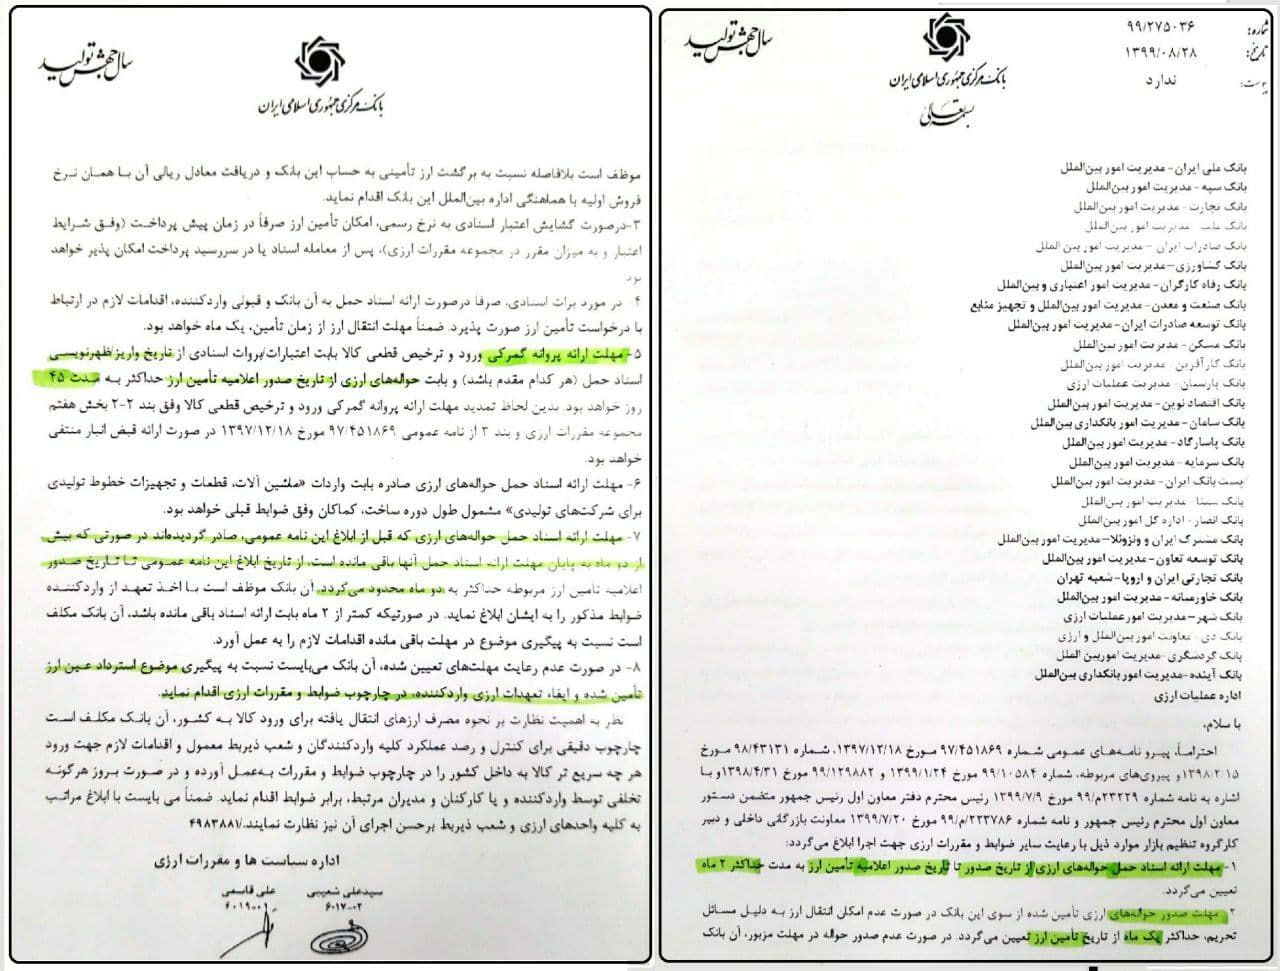 شماره: ۹۹/۲۷۵۰۳۶
تاریخ: ۱۳۹۹/۰۸/۲۸
پیوست: ندارد
سال جهش تولید
بانک مرکزی جمهوری اسلامی ایران
بسمه تعالی
بانک ملی ایران - مدیریت امور بین‌الملل
بانک سپه - مدیریت امور بین‌الملل
بانک تجارت - مدیریت امور بین‌الملل
بانک ملت - مدیریت امور بین‌الملل
بانک صادرات ایران - مدیریت امور بین‌الملل
بانک کشاورزی - مدیریت امور بین‌الملل
بانک رفاه کارگران - مدیریت امور اعتباری و بین‌الملل
بانک صنعت و معدن - مدیریت امور بین‌الملل و تجهیز منابع
بانک توسعه صادرات ایران - مدیریت امور بین‌الملل
بانک مسکن - مدیریت امور بین‌الملل
بانک کارآفرین - مدیریت امور بین‌الملل
بانک پارسیان - مدیریت عملیات ارزی
بانک اقتصاد نوین - مدیریت امور بین‌الملل
بانک سامان - مدیریت امور بانکداری بین‌الملل
بانک پاسارگاد - مدیریت امور بین‌الملل
بانک سرمایه - مدیریت امور بین‌الملل
پست بانک ایران - مدیریت امور بین‌الملل
بانک سینا - مدیریت امور بین‌الملل
بانک انصار - اداره کل امور بین‌الملل
بانک مشترک ایران و ونزوئلا - مدیریت امور بین‌الملل
بانک توسعه تعاون - مدیریت امور بین‌الملل
بانک تجارتی ایران و اروپا - شعبه تهران
بانک خاورمیانه - مدیریت امور بین‌الملل
بانک شهر - مدیریت امور عملیات ارزی
بانک دی - معاونت امور بین‌الملل و ارزی
بانک گردشگری - مدیریت امور بین الملل
بانک آینده - مدیریت امور بانکداری بین‌الملل
اداره عملیات ارزی
با سلام،
احتراماً، پیرو نامه‌های عمومی شماره ۹۷/۴۵۱۸۶۹ مورخ ۱۳۹۷/۱۲/۱۸، شماره ۹۸/۴۳۱۳۱ مورخ
۱۳۹۸/۲/۱۵ و پیروی‌های مربوطه، شماره ۹۹/۱۰۵۸۴ مورخ ۱۳۹۹/۱/۲۴ و ۹۹/۱۲۹۸۸۲ مورخ ۱۳۹۸/۴/۳۱ و با
اشاره به نامه شماره ۲۳۲۲۹/م/۹۹ مورخ ۱۳۹۹/۷/۹ رئیس محترم دفتر معاون اول رئیس جمهور متضمن دستور
معاون اول محترم رئیس جمهور و نامه شماره ۲۲۳۷۸۶/م/۹۹ مورخ ۱۳۹۹/۷/۲۰ معاونت بازرگانی داخلی و دبیر
کارگروه تنظیم بازار موارد ذیل با رعایت سایر ضوابط و مقررات ارزی جهت اجرا ابلاغ می‌گردد:
۱- مهلت ارائه اسناد حمل حواله‌های ارزی از تاریخ صدور تا تاریخ صدور اعلامیه تأمین ارز به مدت حداکثر ۲ ماه
تعیین می‌گردد.
۲- مهلت صدور حواله‌های ارزی تأمین شده از سوی این بانک در صورت عدم امکان انتقال ارز به دلیل مسائل
تحریم، حداکثر یک ماه از تاریخ تأمین ارز تعیین می‌گردد. در صورت عدم صدور حواله در مهلت مزبور، آن بانک
سال جهش تولید
بانک مرکزی جمهوری اسلامی ایران
موظف است بلافاصله نسبت به برگشت ارز تأمینی به حساب این بانک و دریافت معادل ریالی آن با همان نرخ
فروش اولیه با هماهنگی اداره بین‌الملل این بانک اقدام نماید.
۳- درصورت گشایش اعتبار اسنادی به نرخ رسمی، امکان تأمین ارز صرفاً در زمان پیش پرداخت (وفق شرایط
اعتبار و به میزان مقرر در مجموعه مقررات ارزی)، پس از معامله اسناد یا در سررسید پرداخت امکان پذیر خواهد
بود
۴- در مورد برات اسنادی، صرفاً درصورت ارائه اسناد حمل به آن بانک و قبولی واردکننده، اقدامات لازم در ارتباط
با درخواست تأمین ارز صورت پذیرد. ضمناً مهلت انتقال ارز از زمان تأمین، یک ماه خواهد بود.
۵- مهلت ارائه پروانه گمرکی ورود و ترخیص قطعی کالا بابت اعتبارات/بروات اسنادی از تاریخ واریز/ظهرنویسی
اسناد حمل (هر کدام مقدم باشد) و بابت حواله‌های ارزی از تاریخ صدور اعلامیه تأمین ارز حداکثر به مدت ۴۵
روز خواهد بود. بدین لحاظ تمدید مهلت ارائه پروانه گمرکی ورود و ترخیص قطعی کالا وفق بند ۲-۲ بخش هفتم
مجموعه مقررات ارزی و بند ۳ از نامه عمومی ۹۷/۴۵۱۸۶۹ مورخ ۱۳۹۷/۱۲/۱۸ در صورت ارائه قبض انبار منتفی
خواهد بود.
۶- مهلت ارائه اسناد حمل حواله‌های ارزی صادره بابت واردات «ماشین آلات، قطعات و تجهیزات خطوط تولیدی
برای شرکت‌های تولیدی» مشمول طول دوره ساخت، کماکان وفق ضوابط قبلی خواهد بود.
۷- مهلت ارائه اسناد حمل حواله‌های ارزی که قبل از ابلاغ این نامه عمومی، صادر گردیده‌اند در صورتی که بیش
از دو ماه به پایان مهلت ارائه اسناد حمل آنها باقی مانده است، از تاریخ ابلاغ این نامه عمومی تا تاریخ صدور
اعلامیه تأمین ارز مربوطه حداکثر به دو ماه محدود می‌گردد. آن بانک موظف است با اخذ تعهد از واردکننده
ضوابط مذکور را به ایشان ابلاغ نماید. در صورتیکه کمتر از ۲ ماه بابت ارائه اسناد باقی مانده باشد، آن بانک مکلف
است نسبت به پیگیری موضوع در مهلت باقی مانده اقدامات لازم را به عمل آورد.
۸- در صورت عدم رعایت مهلت‌های تعیین شده، آن بانک می‌بایست نسبت به پیگیری موضوع استرداد عین ارز
تأمین شده و ایفاء تعهدات ارزی واردکننده، در چارچوب ضوابط و مقررات ارزی اقدام نماید.
نظر به اهمیت نظارت بر نحوه مصرف ارزهای انتقال یافته برای ورود کالا به کشور، آن بانک مکلف است
چارچوب دقیقی برای کنترل و رصد عملکرد کلیه واردکنندگان و شعب ذیربط معمول و اقدامات لازم جهت ورود
هر چه سریع تر کالا به داخل کشور را در چارچوب ضوابط و مقررات به‌عمل آورده و در صورت بروز هرگونه
تخلفی توسط واردکننده و یا کارکنان و مدیران مرتبط، برابر ضوابط اقدام نماید. ضمناً می بایست با ابلاغ مراتب
به کلیه واحدهای ارزی و شعب ذیربط برحسن اجرای آن نیز نظارت نمایند./۴۹۸۳۸۸۱
اداره سیاست ها و مقررات ارزی
سیدعلی شعیبی
۶۰۱۷-۰۲
علی قاسمی
۶۰۱۹-۰۱